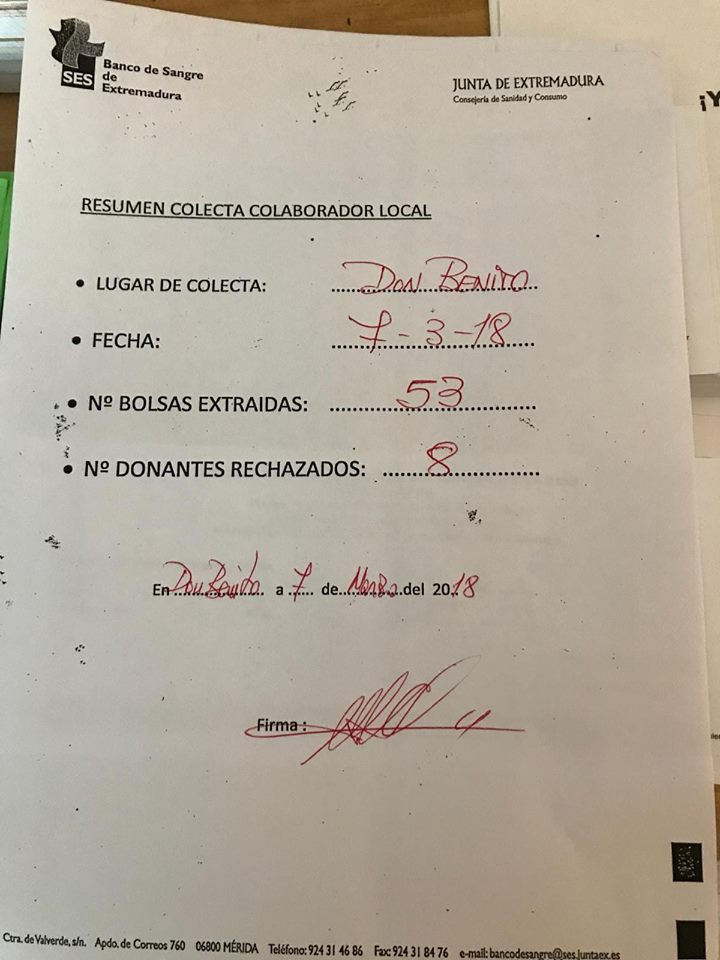 SES
Banco de Sangre
de
Extremadura
JUNTA DE EXTREMADURA
Consejería de Sanidad y Consumo
¡Y
RESUMEN COLECTA COLABORADOR LOCAL
• LUGAR DE COLECTA: DON BENITO
• FECHA: 7-3-18
• Nº BOLSAS EXTRAIDAS: 53
• Nº DONANTES RECHAZADOS: 8
En Don Benito a 7 de Marzo del 2018
Firma:
Ctra. de Valverde, s/n. Apdo. de Correos 760 06800 MÉRIDA Teléfono: 924 31 46 86 Fax: 924 31 84 76 e-mail: bancodesangre@ses.juntaex.es